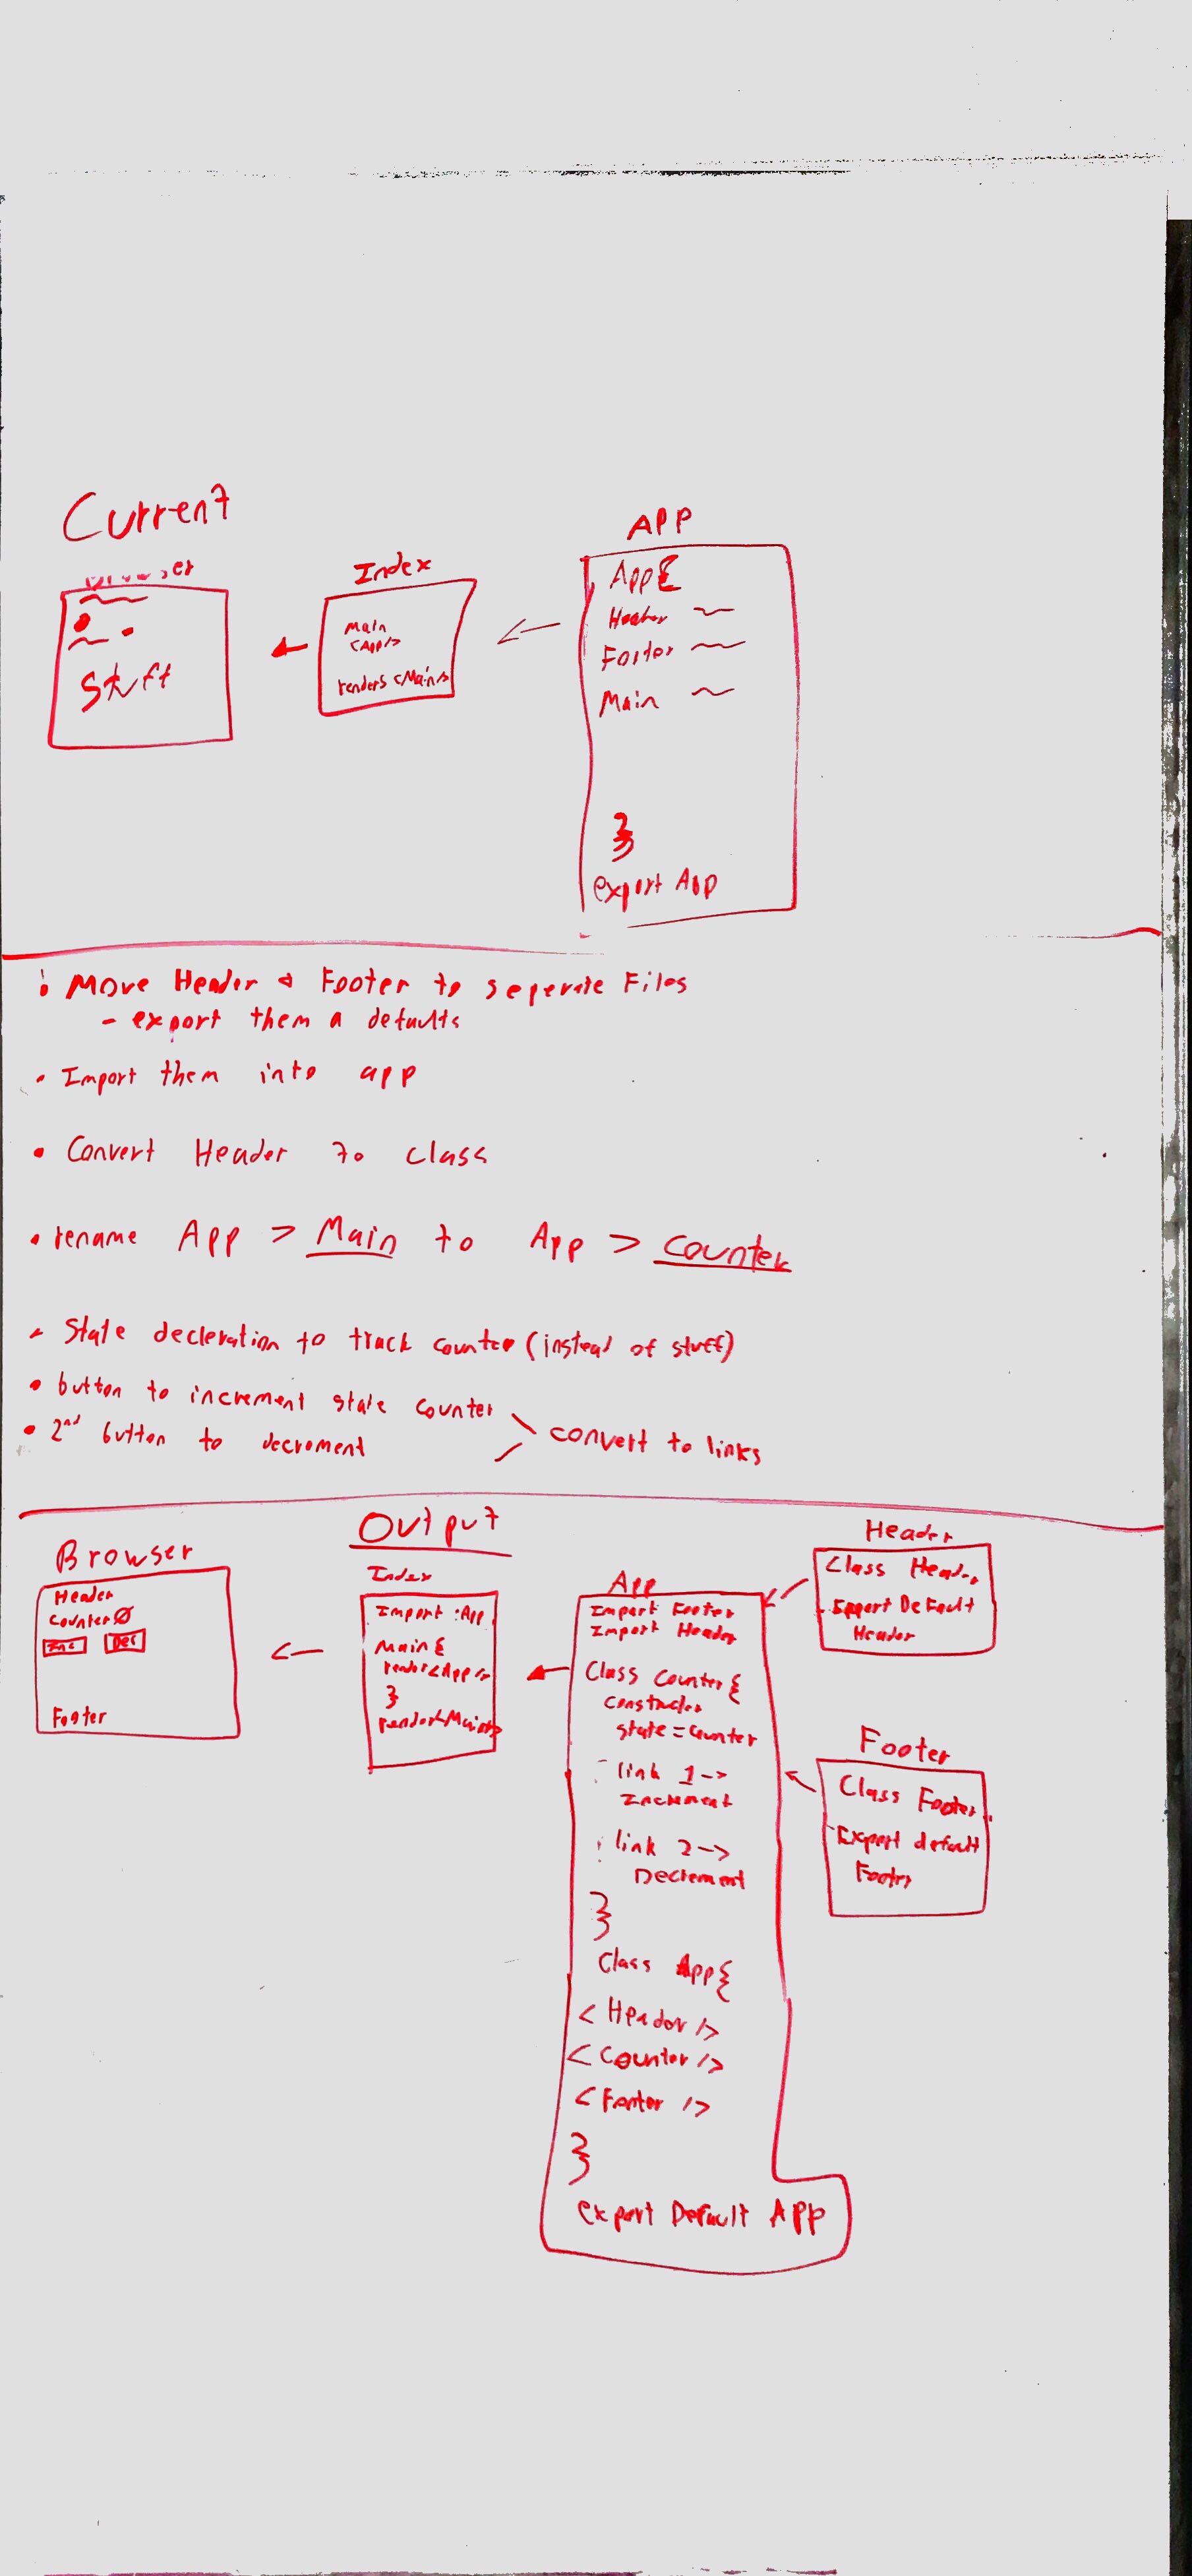 Current
Index
Main
<App/>
renders <Main/>
Stuff
APP
App{
Header
Footer
Main
}
export App
Move Header & Footer to seperate Files
- export them a defaults
• Import them into app
• Convert Header to class
• rename App > Main to App > Counter
• State decleration to track counter (instead of stuff)
• button to increment state counter
• 2nd button to decrement
convert to links
Output
Browser
Header
Counter 0
Inc Dec
Footer
Index
Import App
Main {
render <App/>
}
render <Main/>
App
Import Footer
Import Header
Class Counter {
constructor
state = counter
link 1 ->
Increment
link 2 ->
Decrement
}
Class App {
< Header />
< Counter />
< Footer />
}
export Default App
Header
Class Header
Export Default
Header
Footer
Class Footer
Export default
Footer